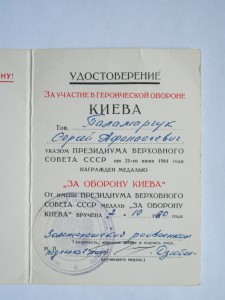 НУ!
УДОСТОВЕРЕНИЕ
ЗА УЧАСТИЕ В ГЕРОИЧЕСКОЙ ОБОРОНЕ
КИЕВА
Тов. Паламарчук
Сергей Афонасьевич
УКАЗОМ ПРЕЗИДИУМА ВЕРХОВНОГО
СОВЕТА СССР от 21-го июня 1961 года
НАГРАЖДЕН МЕДАЛЬЮ
„ЗА ОБОРОНУ КИЕВА“
От имени ПРЕЗИДИУМА ВЕРХОВНОГО
СОВЕТА СССР МЕДАЛЬ „ЗА ОБОРОНУ
КИЕВА“ ВРУЧЕНА 2 10 1980 года
М. П.
вручившего медаль)